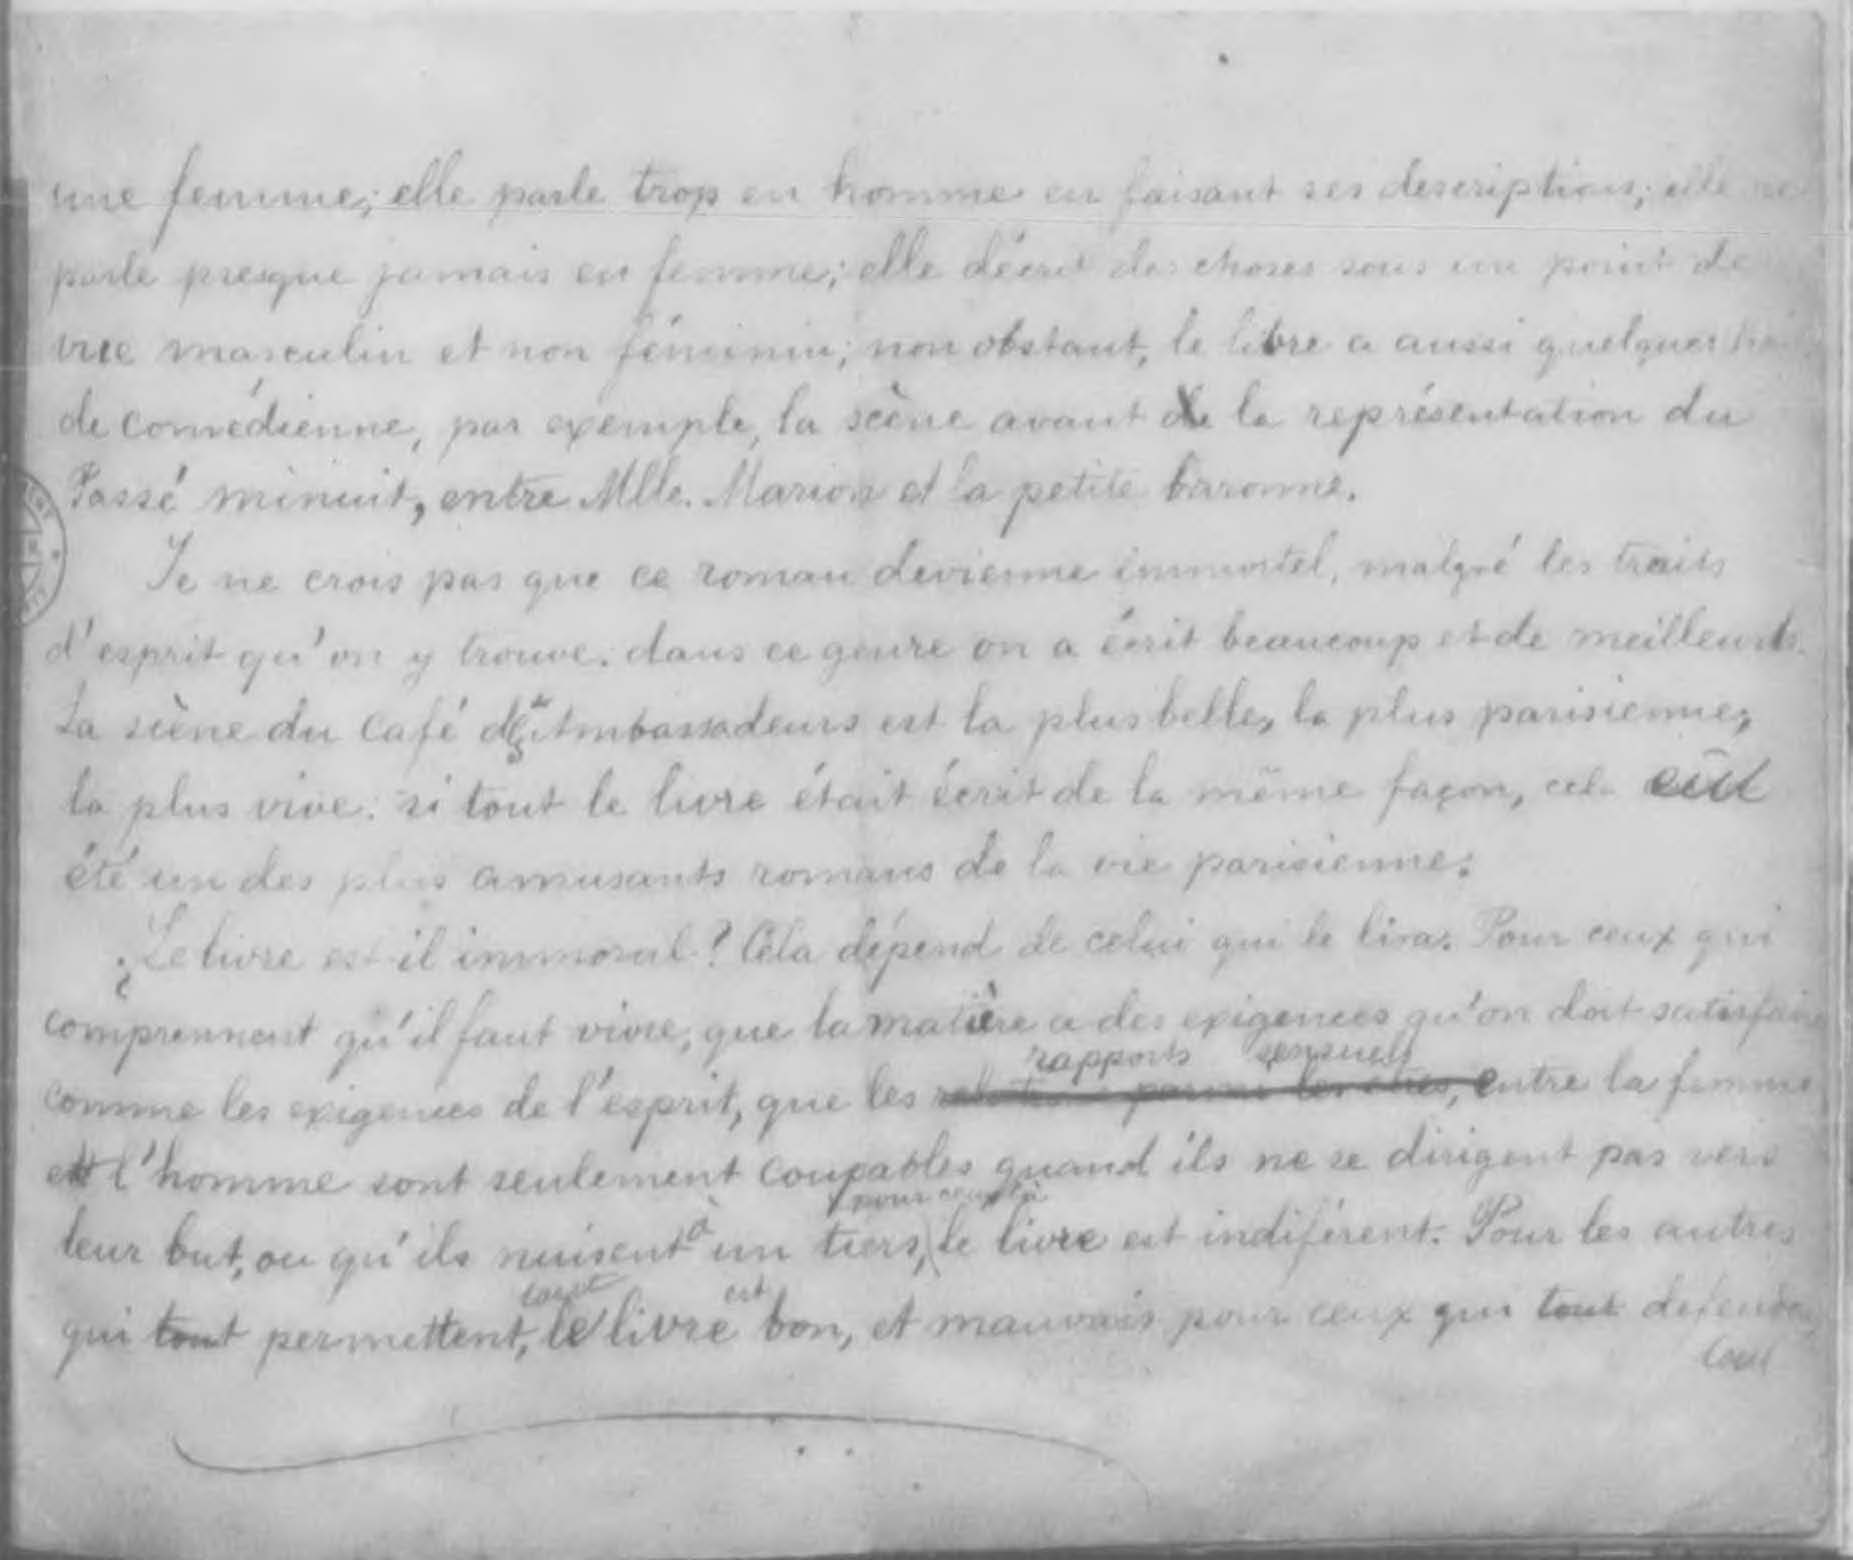 une femme; elle parle trop en homme en faisant ses descriptions; elle ne
parle presque jamais en femme; elle décrit des choses sous un point de
vue masculin et non féminin; non obstant, le libre a aussi quelques
de comédienne, par exemple, la scène avant de la représentation du
Passé minuit, entre Mlle. Marion et la petite baronne.
Je ne crois pas que ce roman devienne immortel, malgré les traits
d'esprit qu'on y trouve. dans ce genre on a écrit beaucoup et de meilleurs.
La scène du Café des Ambassadeurs est la plus belle, la plus parisienne,
la plus vive: si tout le livre était écrit de la même façon, cela eût
été un des plus amusants romans de la vie parisienne.
¿Le livre est-il immoral? Cela dépend de celui qui le lira. Pour ceux qui
comprennent qu'il faut vivre, que la matière a des exigences qu'on doit satisfaire
rapports sensuels
comme les exigences de l'esprit, que les entre la femme
et l'homme sont seulement coupables quand ils ne se dirigent pas vers
à pour ceux là
leur but, ou qu'ils nuisent un tiers, le livre est indiférent. Pour les autres
tout est
qui tout permettent, le livre bon, et mauvais pour ceux qui tout defendent
tout